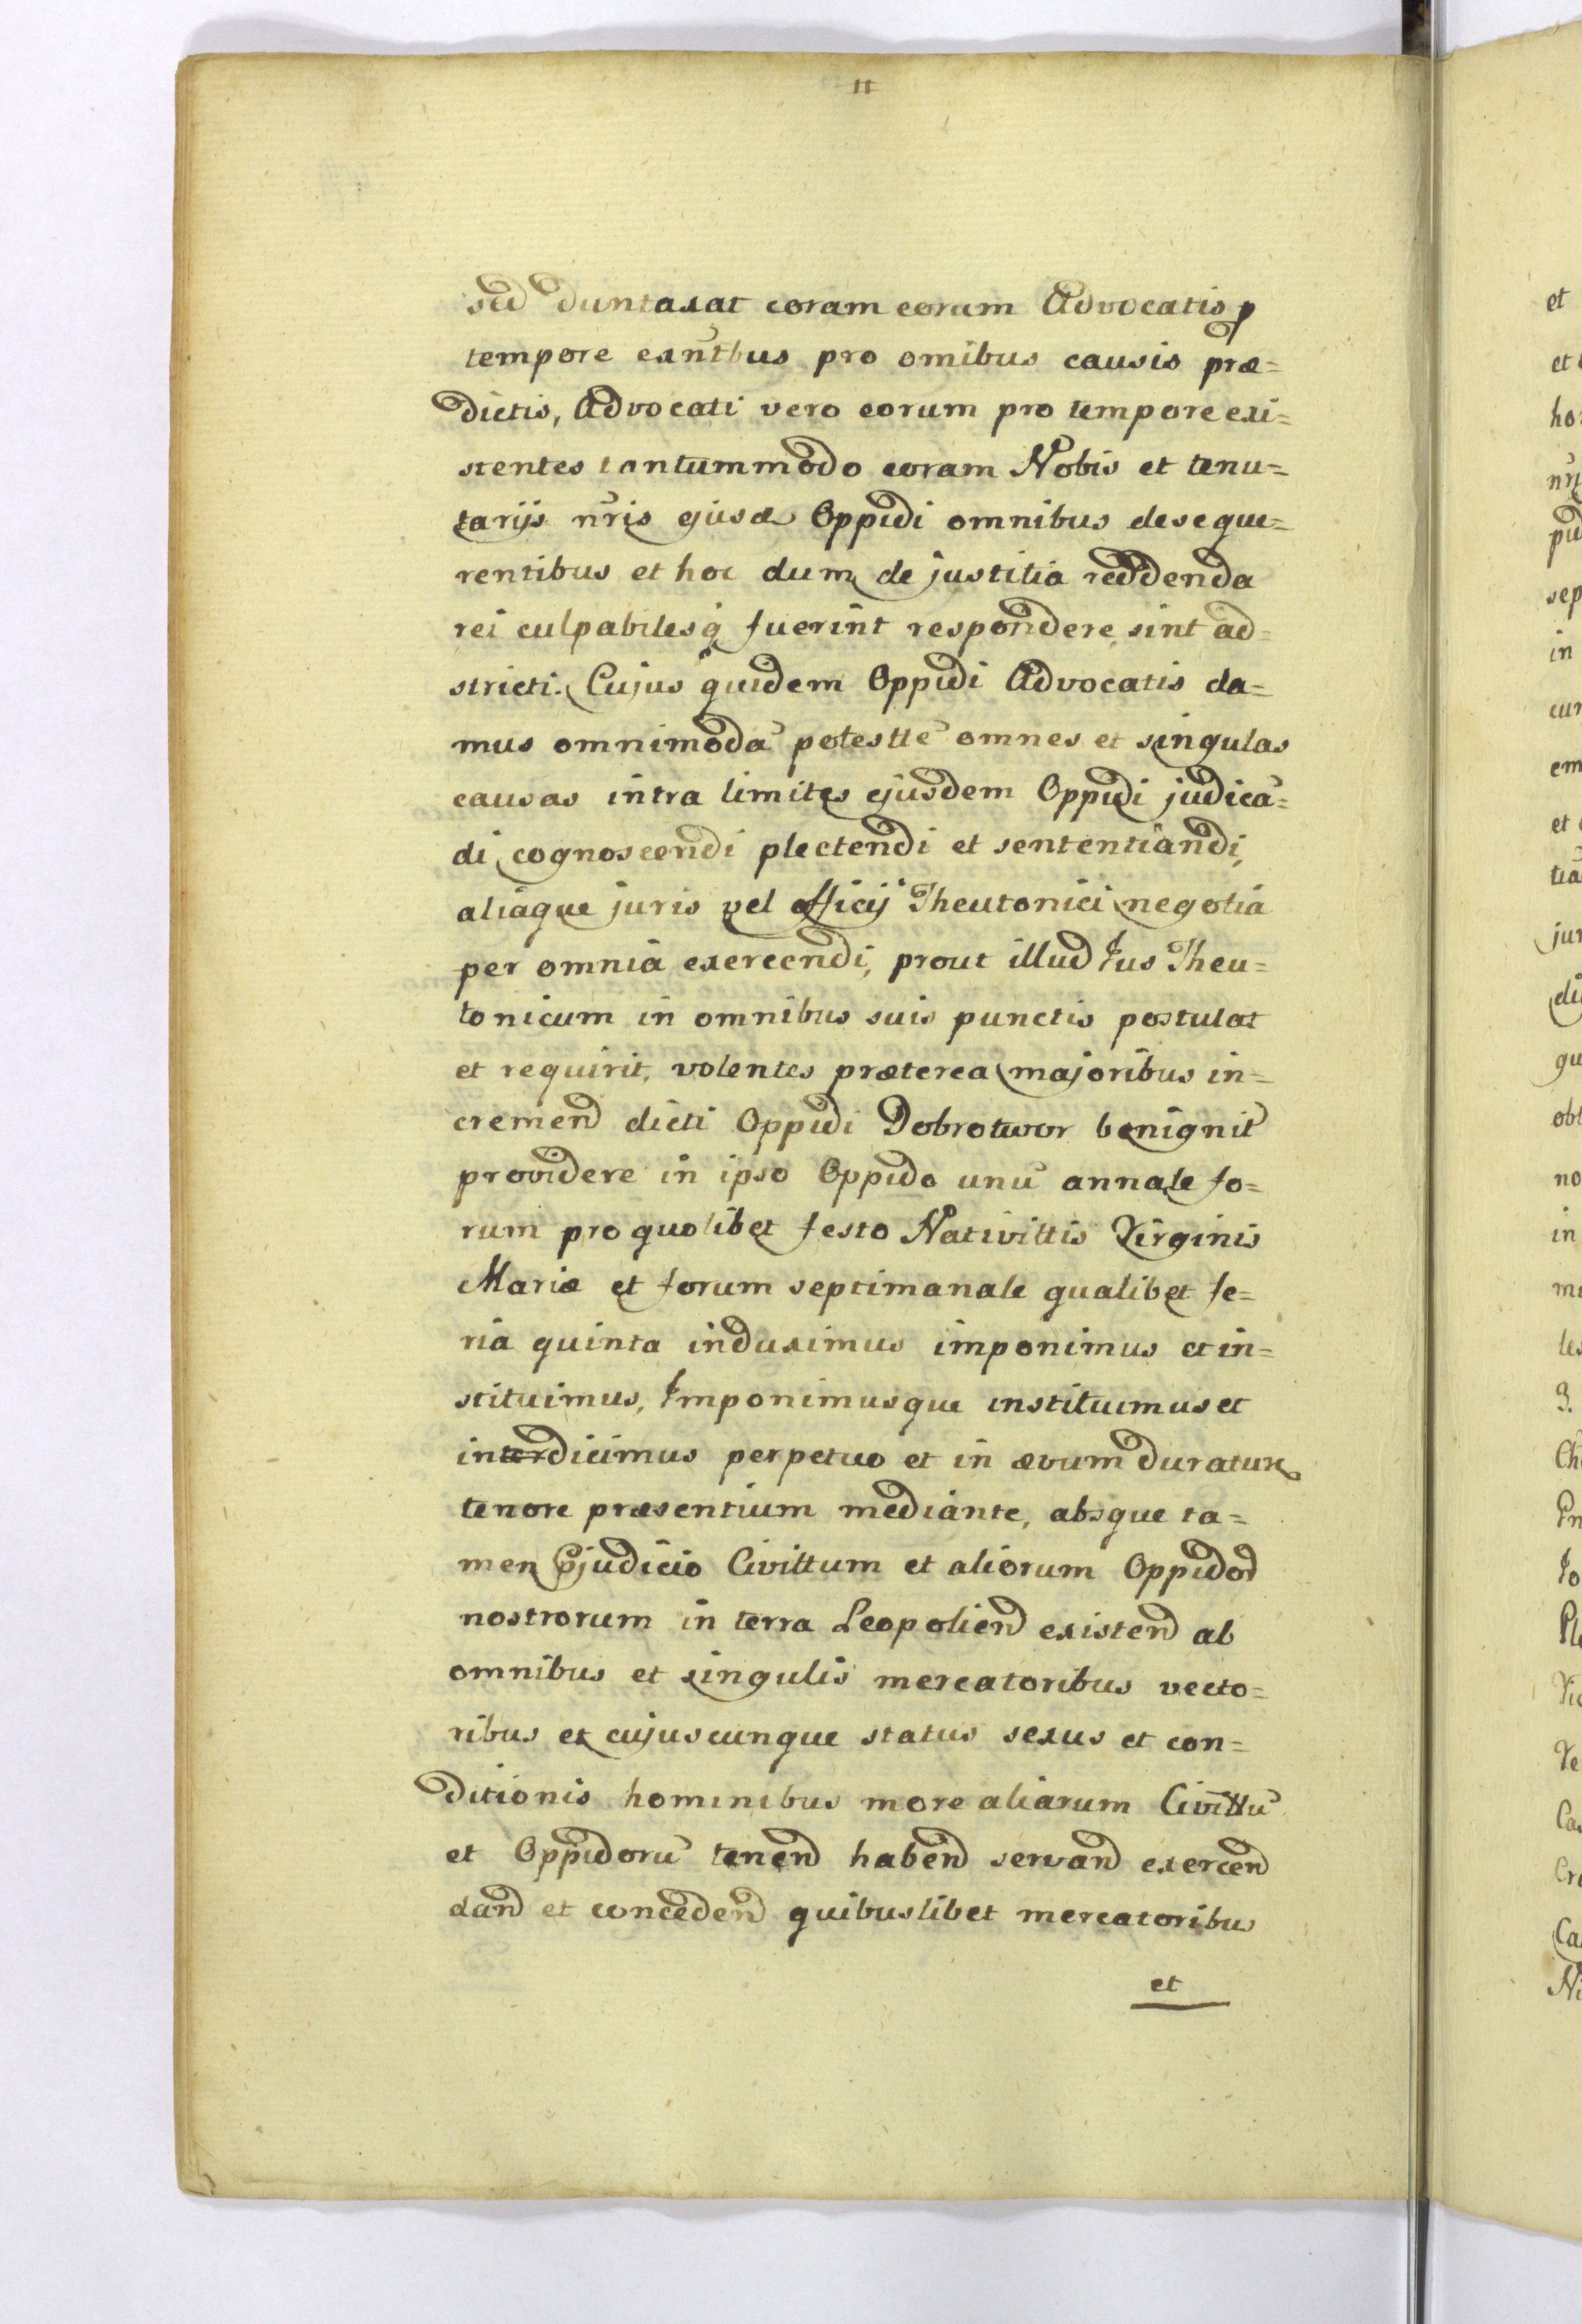 11
sed duntaxat coram eorum Advocatis p
tempore exntbus pro omibus causis præ=
dictis, Advocati vero eorum pro tempore exi=
stentes tantummodo coram Nobis et tenu=
tarijs nris ejusd Oppidi omnibus de se que=
rentibus et hoc dum de justitia reddenda
rei culpabilesq fuerint respondere sint ad=
stricti. Cujus quidem Oppidi Advocatis da=
mus omnimodā potestte omnes et singulas
causas intra limites ejusdem Oppidi judicā=
di cognoscendi plectendi et sententiandi,
aliaque juris vel officij Theutonici negotia
per omnia exercendi, prout illud Jus Theu=
tonicum in omnibus suis punctis postulat
et requirit, volentes præterea majoribus in=
cremend dicti Oppidi Dobrotwor benignit
providere in ipso Oppido unū annale fo=
rum pro quolibet festo Nativittis Virginis
Mariæ et forum septimanale qualibet fe=
ria quinta induximus imponimus et in=
stituimus, Imponimusque instituimus et
interdicimus perpetuo et in ævum duratur
tenore præsentium mediante, absque ta=
men pjudicio Civittum et aliorum Oppidor
nostrorum in terra Leopoliend existend ab
omnibus et singulis mercatoribus vecto=
ribus et cujuscunque status sexus et con=
ditionis hominibus more aliarum Civittū
et Oppidorū tenend habend servand exercend
dand et concedend quibuslibet mercatoribus
et